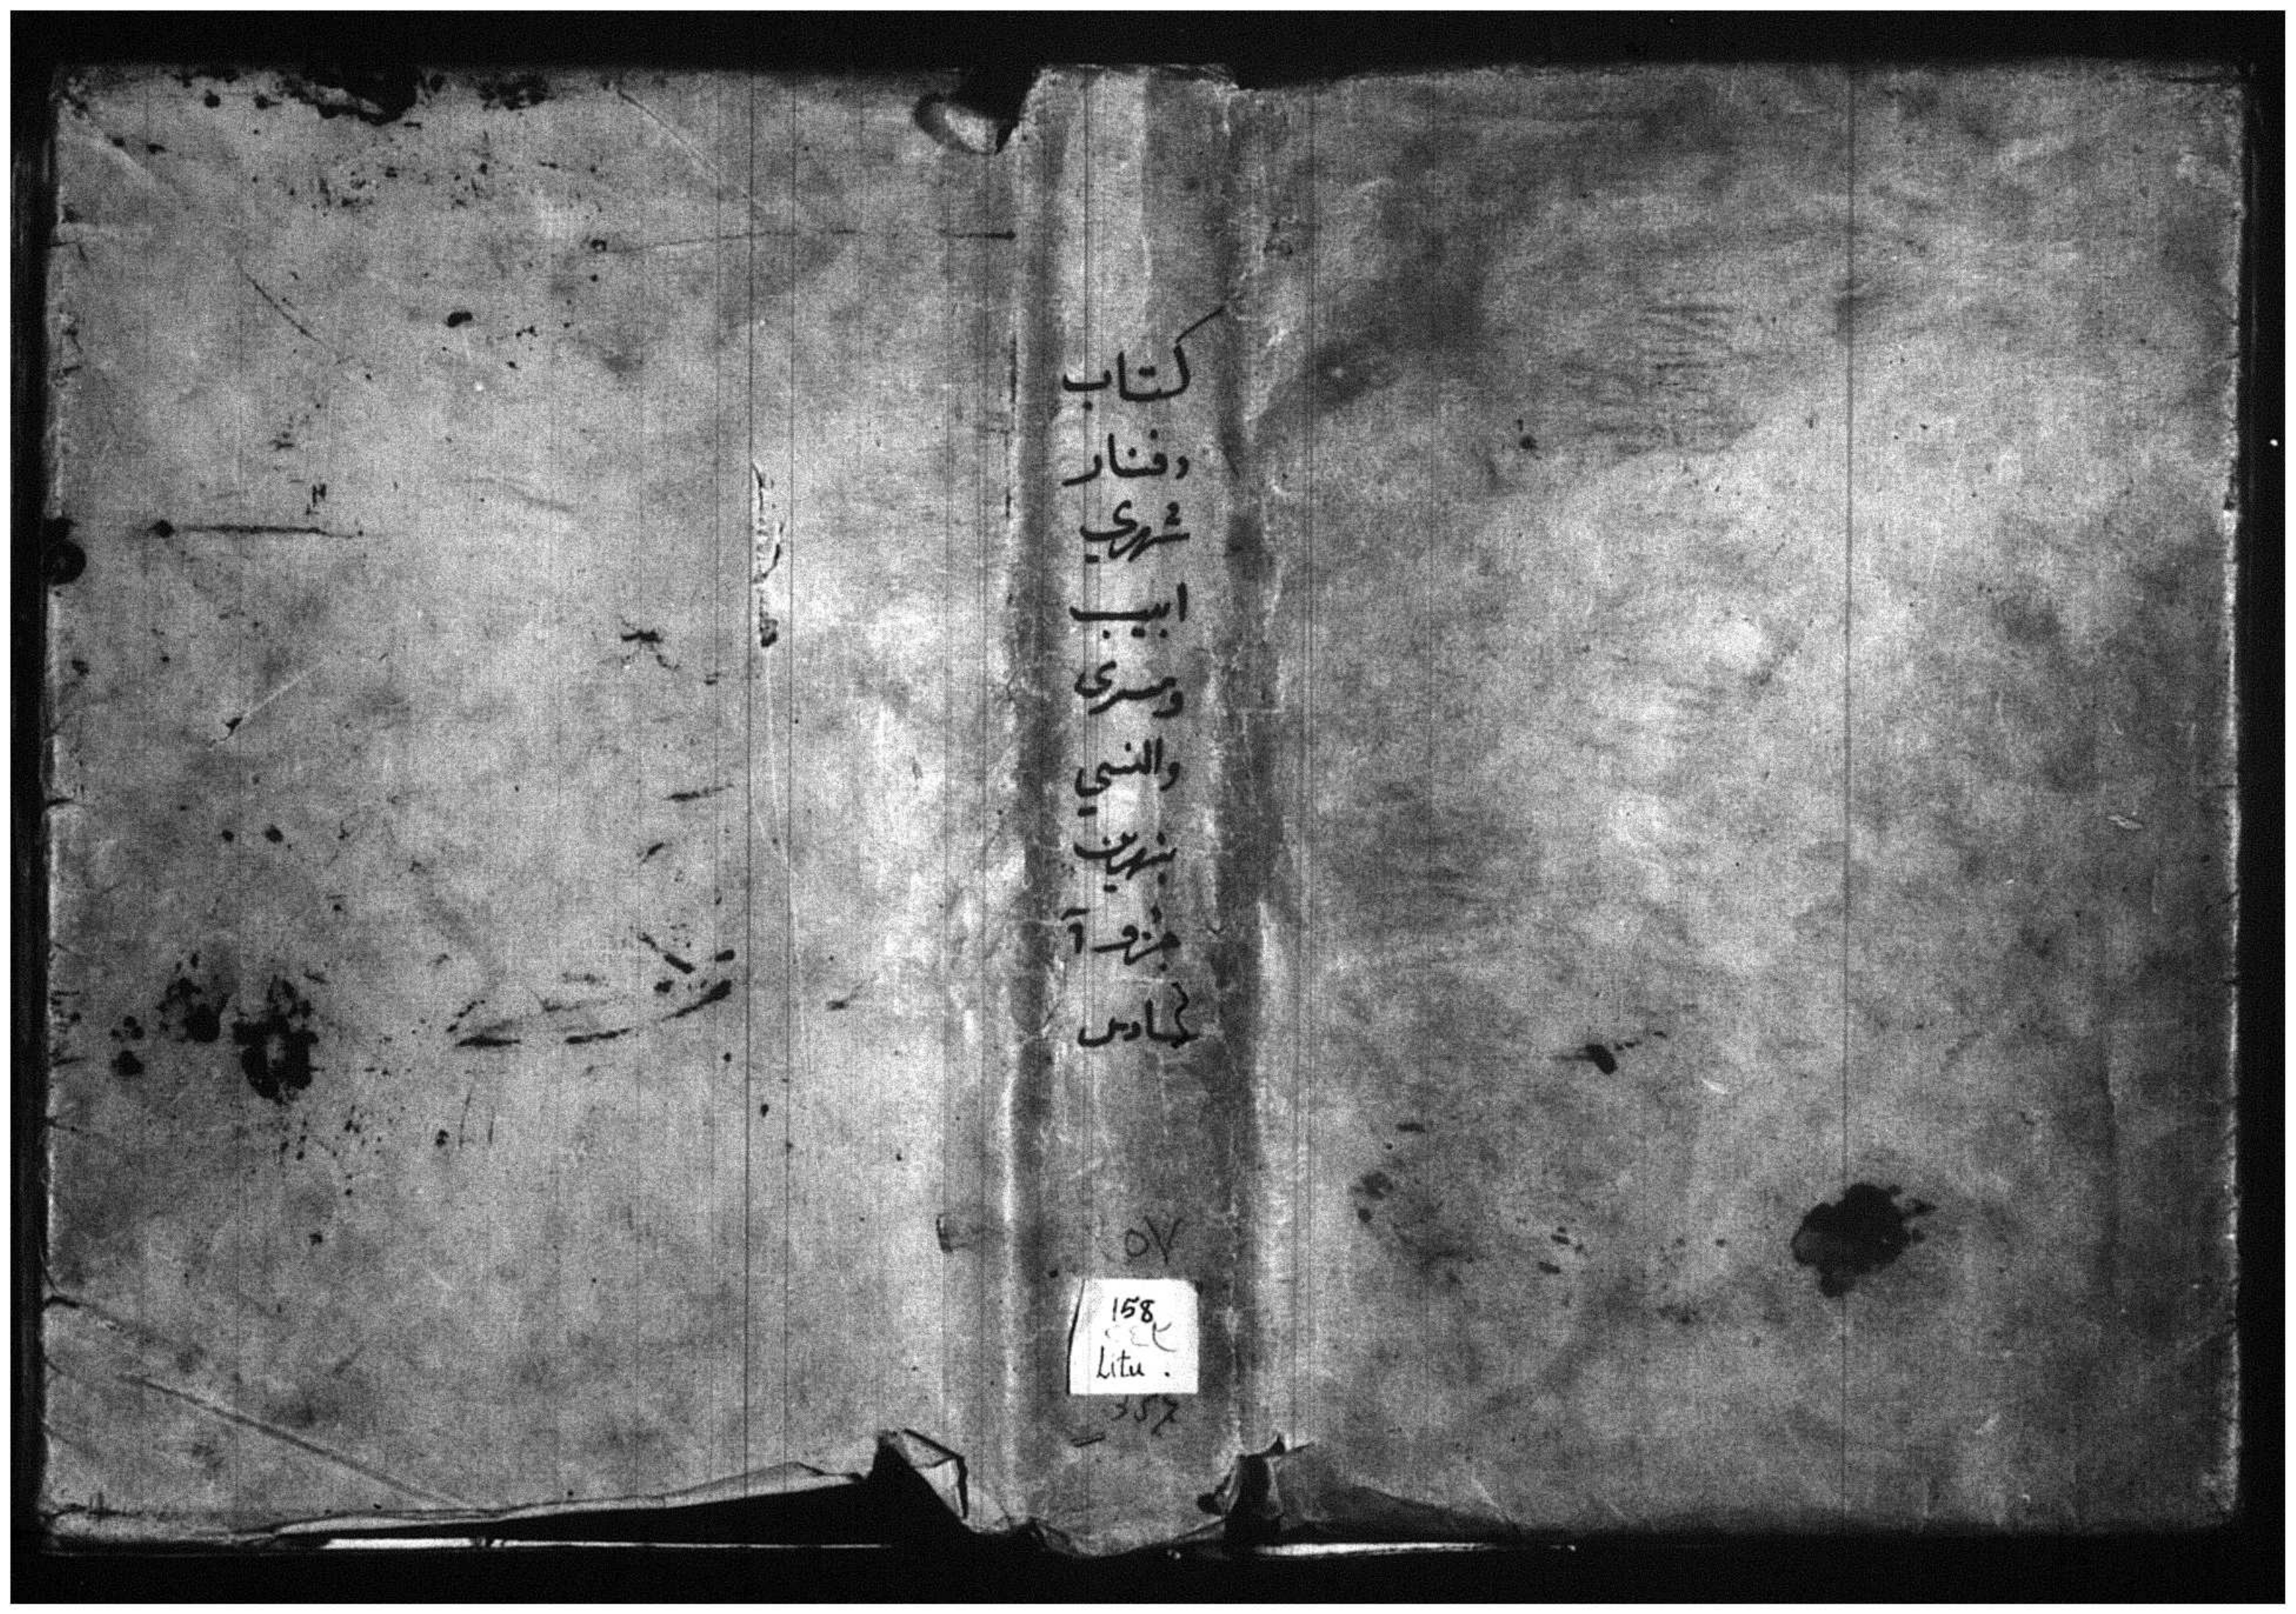 كتاب
دفنار
شهري
ابيب
ومسرى
والنسي
جزو
سادس
٥٧
158
Litu.